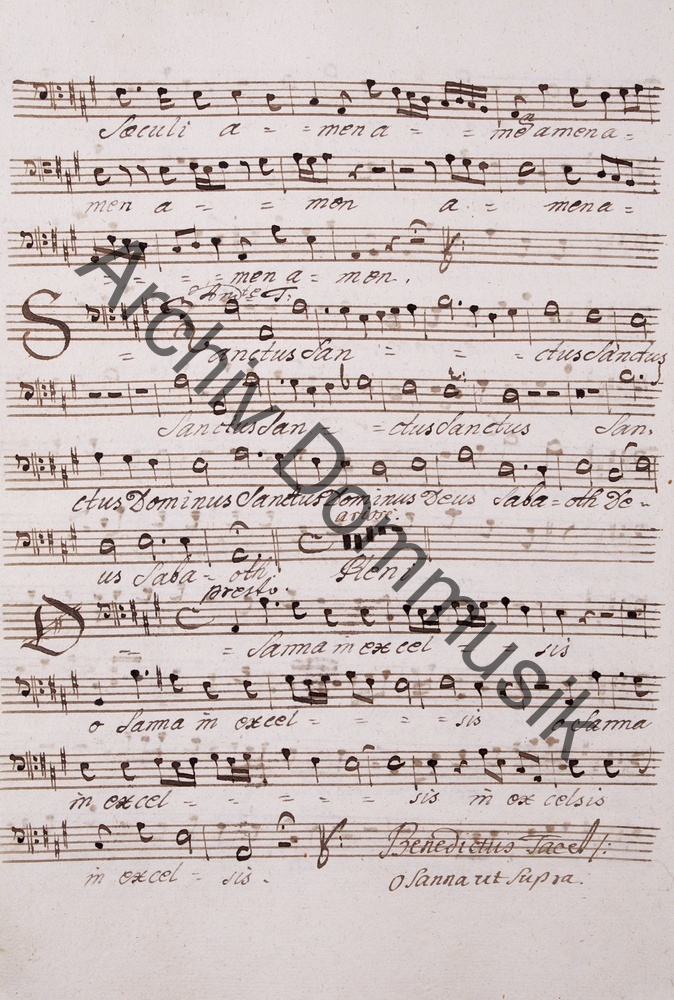 Sœculi a = = men a = = me amen a =
men a = = men a = mena =
= = = men a = men.
Andte T:
Sanctus San = = = ctus Sanctus
Sanctus San = = ctus Sanctus San,
ctus Dominus Sanctus Dominus Deus Saba = oth De =
us Saba = oth Pleni
presto.
O = = Sanna in excel = = sis
o Sanna in excel = = = = sis o Sanna
in excel = = = = = sis in excelsis
Benedictus Tacet /:
in excel = sis. O Sanna ut Supra.
Archiv Dommusik